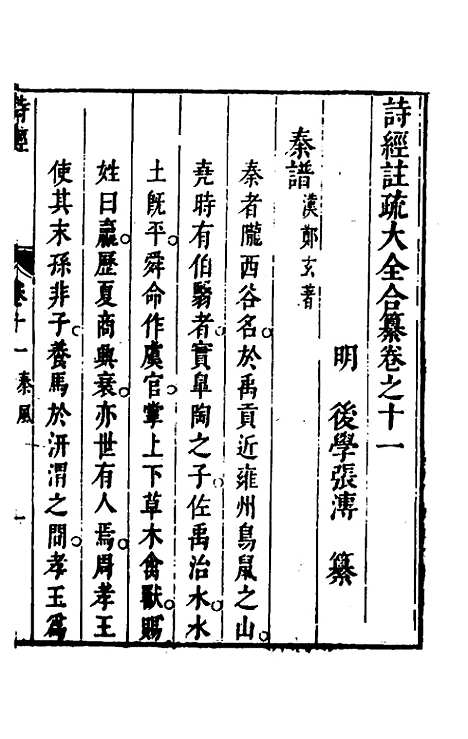 詩經註疏大全合纂卷之十一
明　後學張溥　纂
秦譜漢鄭玄著
秦者隴西谷名於禹貢近雍州鳥鼠之山。
堯時有伯翳者實皐陶之子佐禹治水水
土旣平舜命作虞官掌上下草木禽獸。賜
姓曰嬴。歷夏商興衰。亦世有人焉。周孝王
使其末孫非子。養馬於汧渭之間。孝王爲
詩經　卷十一　秦風　一